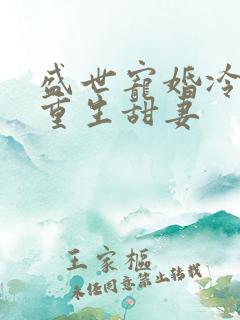 盛世寵婚冷
重生甜妻
王家樞
未经同意禁止转载